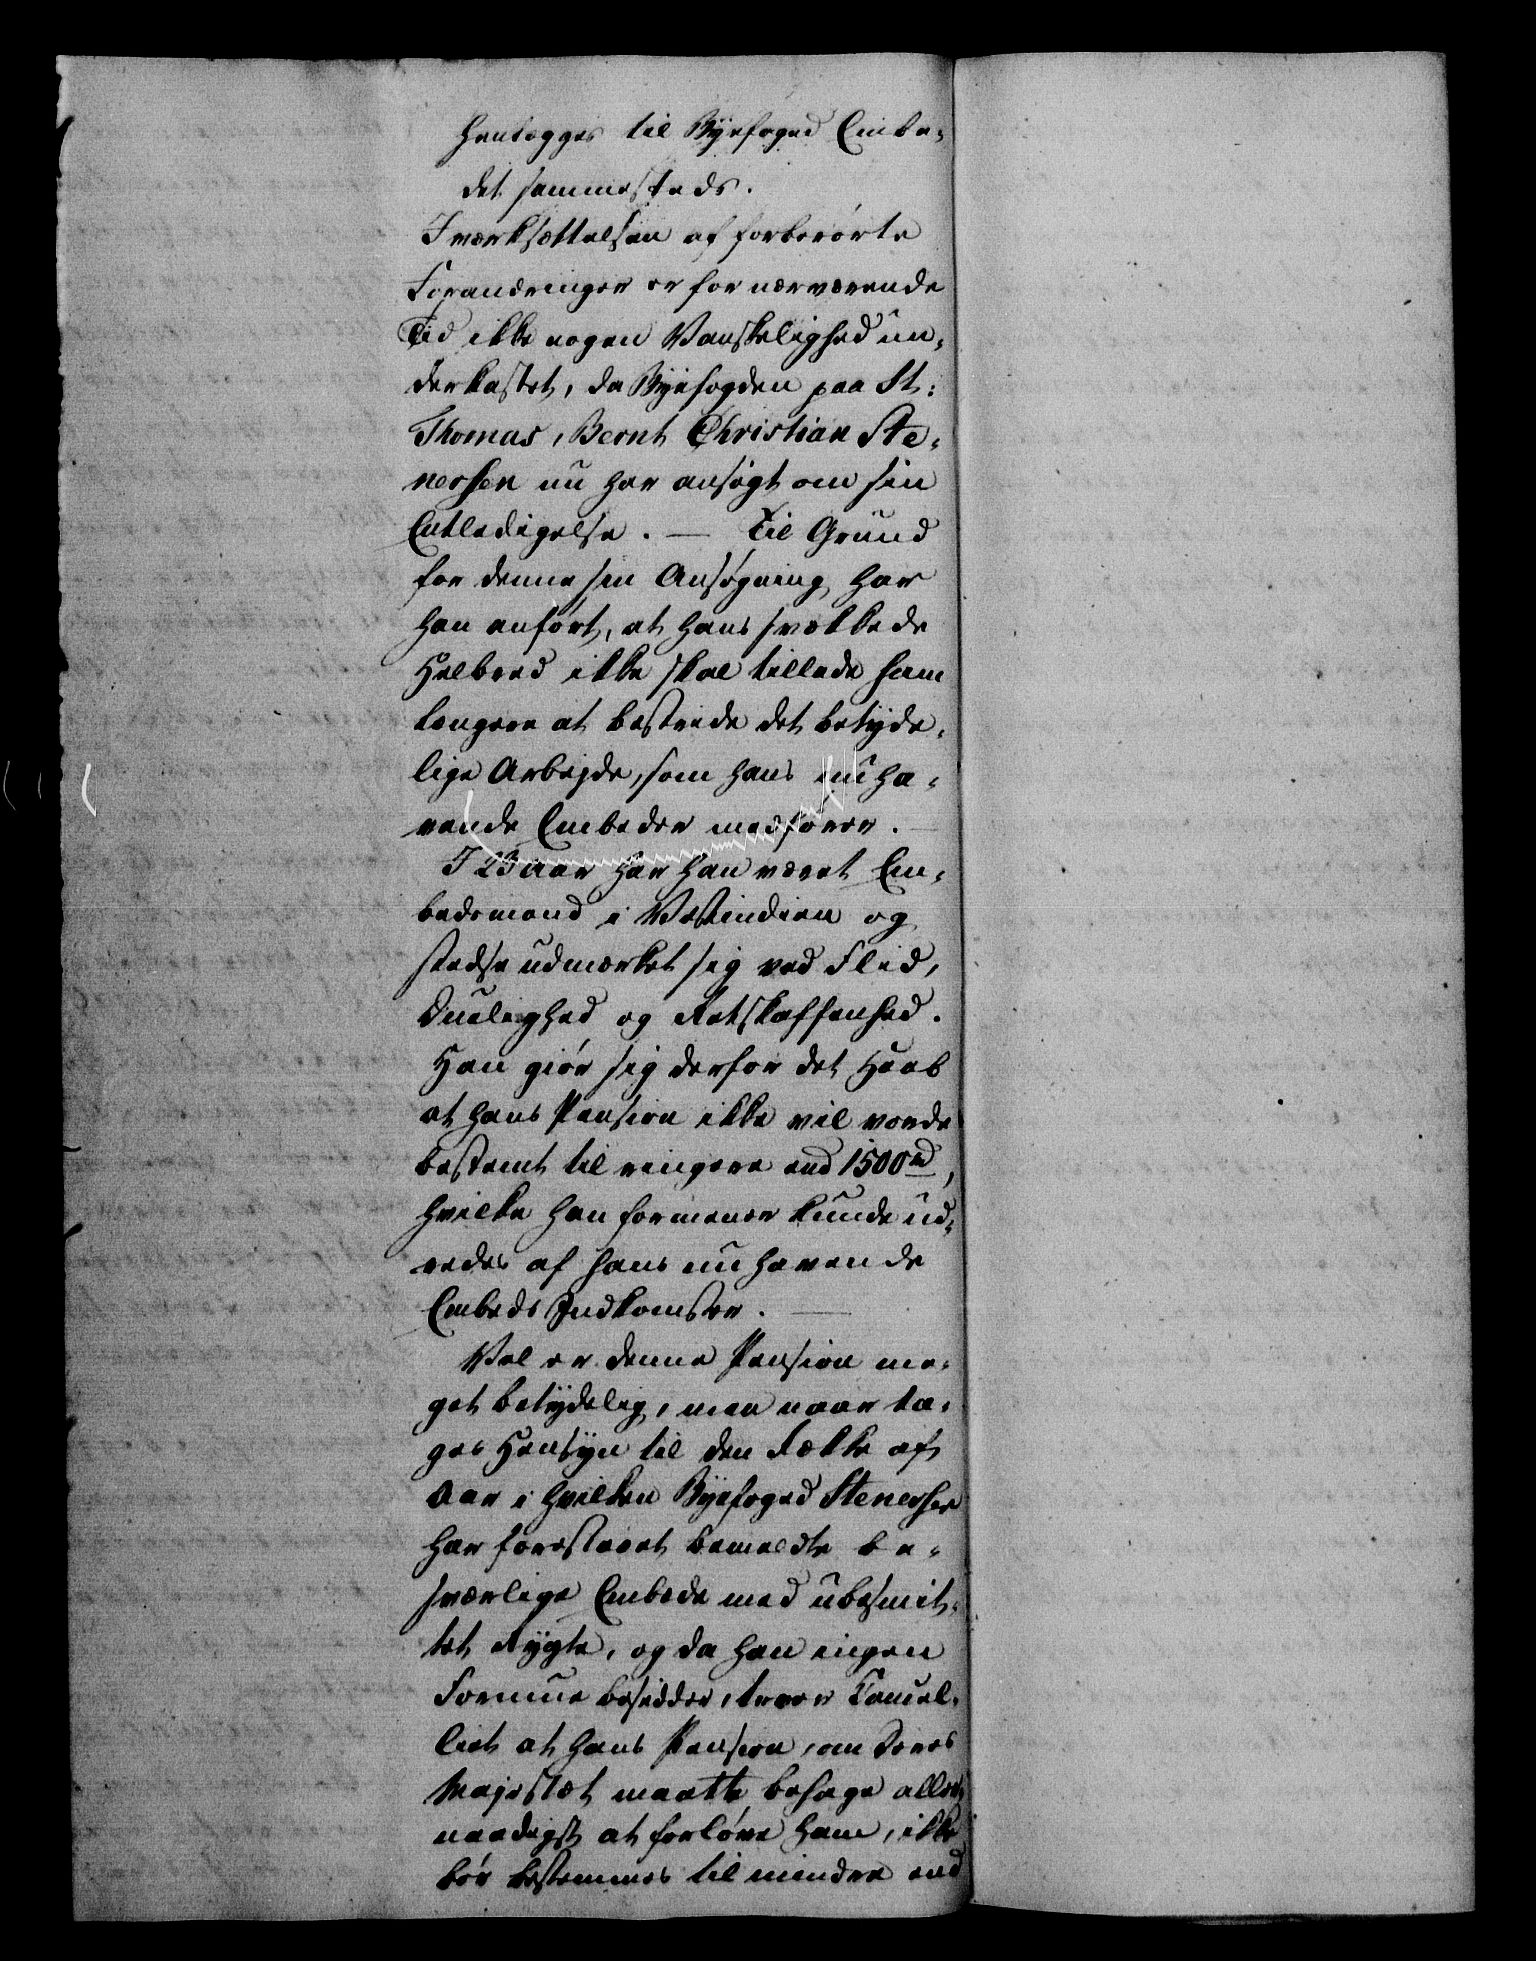 henlægges til Byefoged Embe-
det sammesteds.
Iværksættelsen af forberørte
Forandringer er for nærværende
Tid ikke nogen Vanskelighed un-
derkastet, da Byefogden paa St:
Thomas, Bernt Christian Ste-
nersen nu har ansøgt om sin
Entledigelse. — Til Grund
for denne sin Ansøgning har
han anført, at hans svækkede
Helbred ikke skal tillade ham
længere at bestride det betyde-
lige Arbejde, som hans nuha-
vende Embeder medfører.
I 23 aar har han været Em-
bedsmand i Vestindien og
stedse udmærket sig ved Flid,
Duelighed og Retskaffenhed.
Han giør sig derfor det Haab
at hans Pension ikke vil vorde
bestemt til ringere end 1500 rd,
hvilke han formener kunde ud-
redes af hans nuhavende
Embeds Indkomster. —
Vel er denne Pension me-
get betydelig, men naar ta-
ges Hensyn til den Række af
Aar i hvilken Byefoged Stenersen
har forestaaet bemeldte be-
sværlige Embede med ubesmit-
tet Rygte, og da han ingen
Formue besidder, troer Cancel-
liet at hans Pension, om Deres
Majestæt maatte behage aller-
naadigst at forløve ham, ikke
bør bestemmes til mindre end